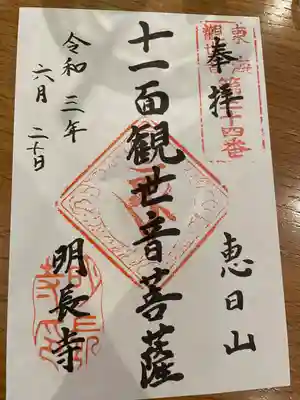 奉拝
第二十四番
恵日山
十一面観世音菩薩
明長寺
令和三年
六月二十日